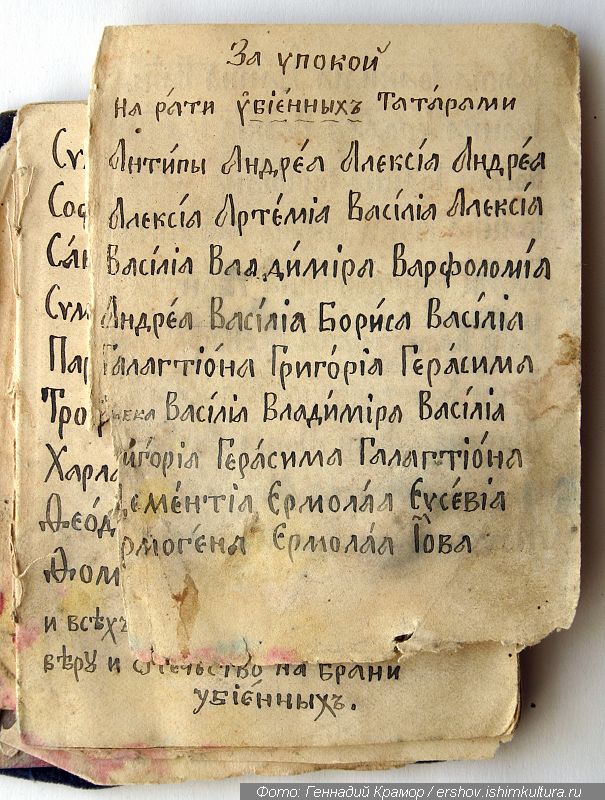 За упокой
на ра́ти ᲂу҆бїе́нныхъ Тата́рами
Анти́пы Андре́а Алексі́а Андре́а
Алексі́а Арте́міа Васі́ліа Алексі́а
Васі́ліа Влади́міра Варѳоломі́а
Андре́а Васі́ліа Бори́са Васі́ліа
Галагтіо́на Григо́ріа Гера́сима
Васі́ліа Влади́міра Васі́ліа
иго́ріа Гера́сима Галагтіо́на
деме́нтіа Ермола́а Еусе́віа
рмоге́на Ермола́а І҆́ова
Су
Соф
Са́к
Сум
Пар
Тро
Харла
Ѳео́д
Ѳом
и всѣхъ
вѣру и ѿте́чьство на брани
убіе́нныхъ.
Фото: Геннадий Крамор / ershov.ishimkultura.ru